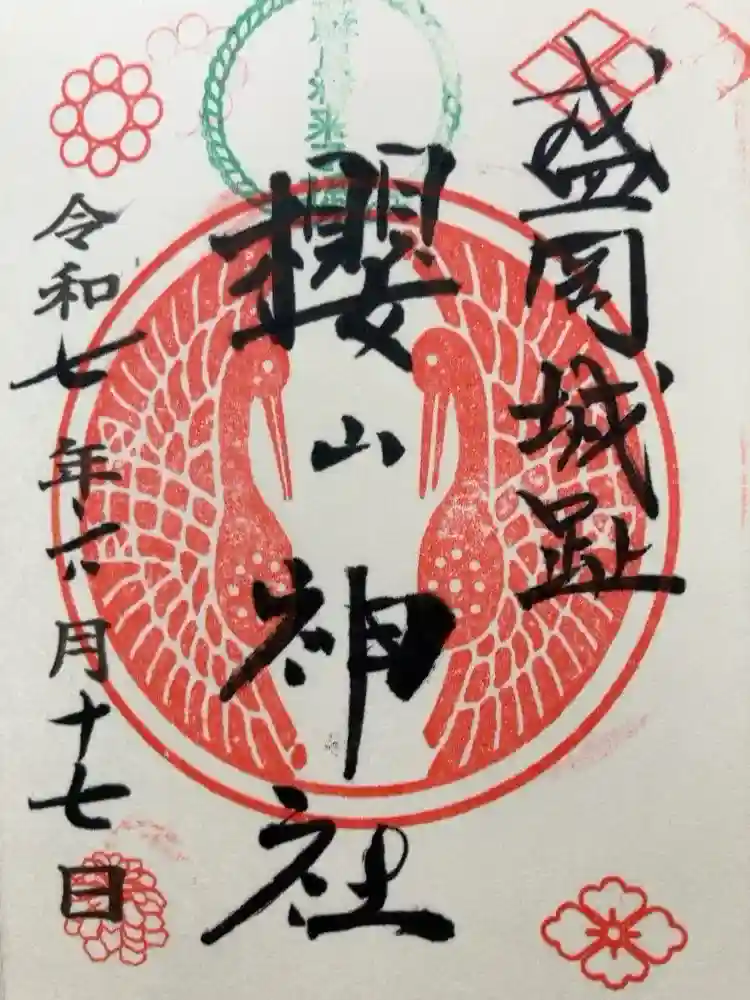 盛岡城趾
櫻山神社
令和七年六月十七日